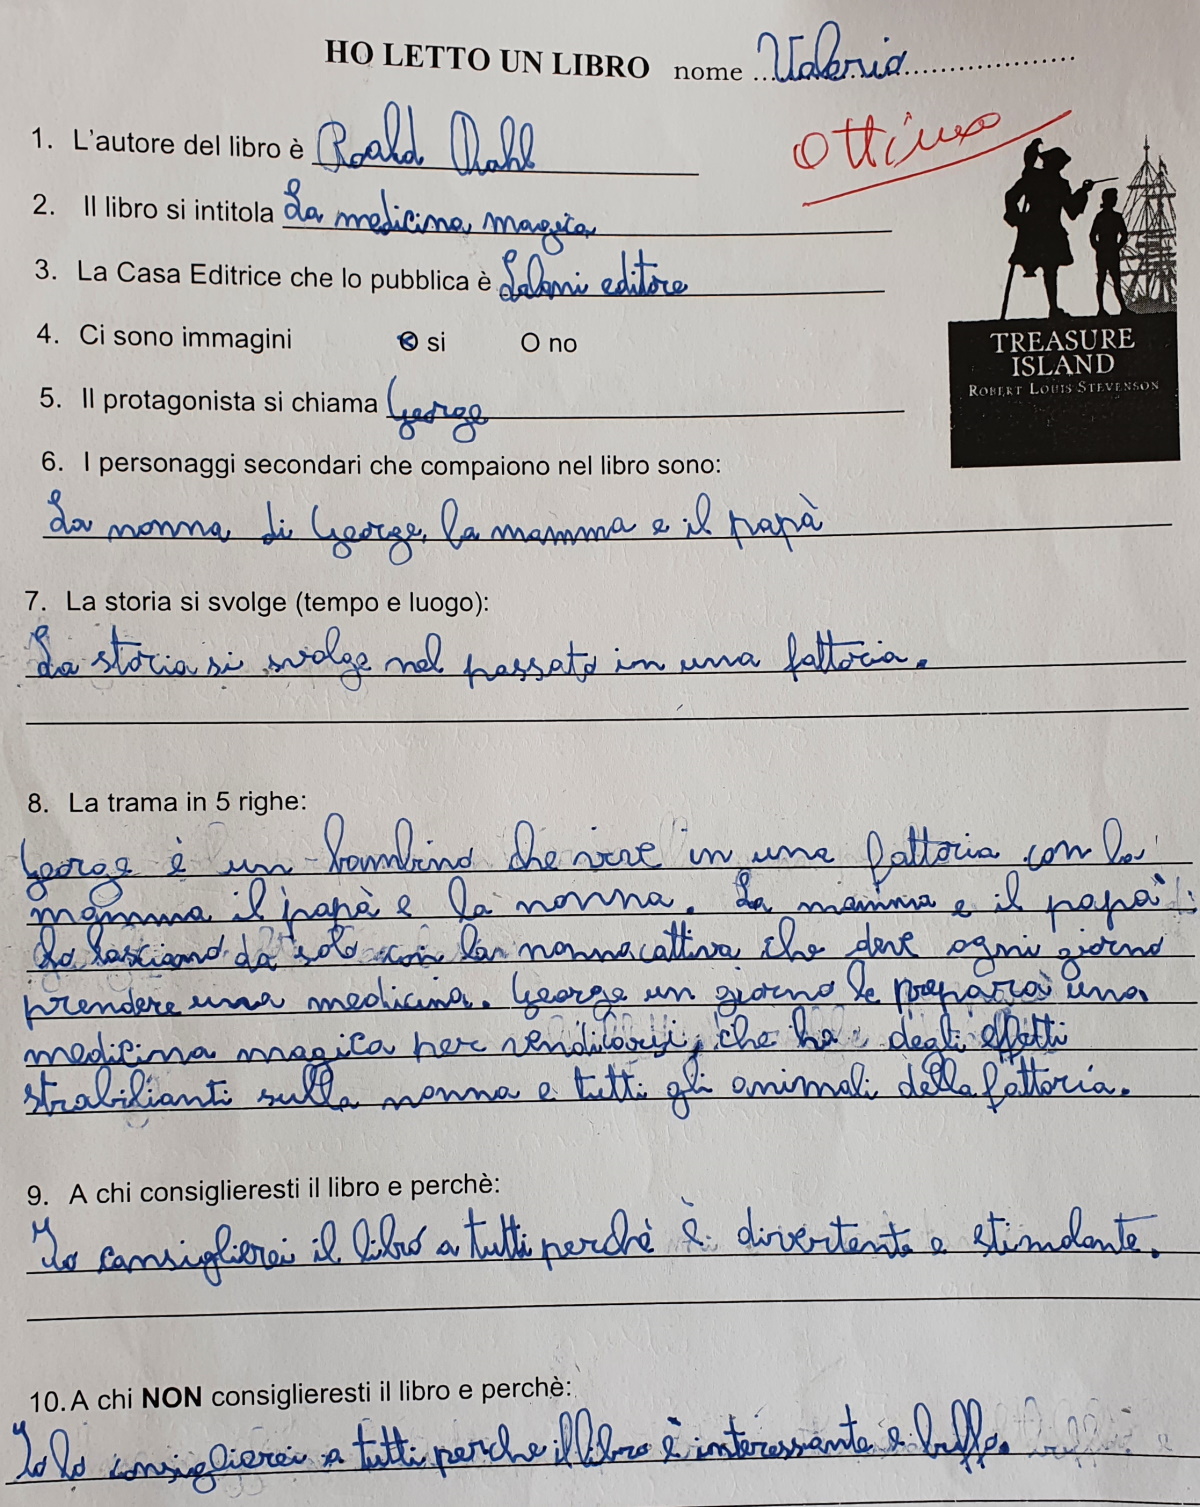 HO LETTO UN LIBRO nome Valeria
Ottimo
1. L'autore del libro è Roald Dhahl
2. Il libro si intitola La medicina magica
3. La Casa Editrice che lo pubblica è Salani editore
4. Ci sono immagini si no
TREASURE
ISLAND
ROBERT LOUIS STEVENSON
5. Il protagonista si chiama George
6. I personaggi secondari che compaiono nel libro sono:
La nonna di George, la mamma e il papà
7. La storia si svolge (tempo e luogo):
La storia si svolge nel passato in una fattoria.
8. La trama in 5 righe:
George è un bambino che vive in una fattoria con la
mamma il papà e la nonna. La mamma e il papà
Lo lasciano da solo con la nonna cattiva che deve ogni giorno
prendere una medicina. George un giorno le prepara una
medicina magica per vendicarsi, che ha degli effetti
strabilianti sulla nonna e tutti gli animali della fattoria.
9. A chi consiglieresti il libro e perchè:
Io consiglierei il libro a tutti perchè è divertente e stimolante.
10. A chi NON consiglieresti il libro e perchè:
Io lo consiglierei a tutti perche il libro è interessante e buffo.